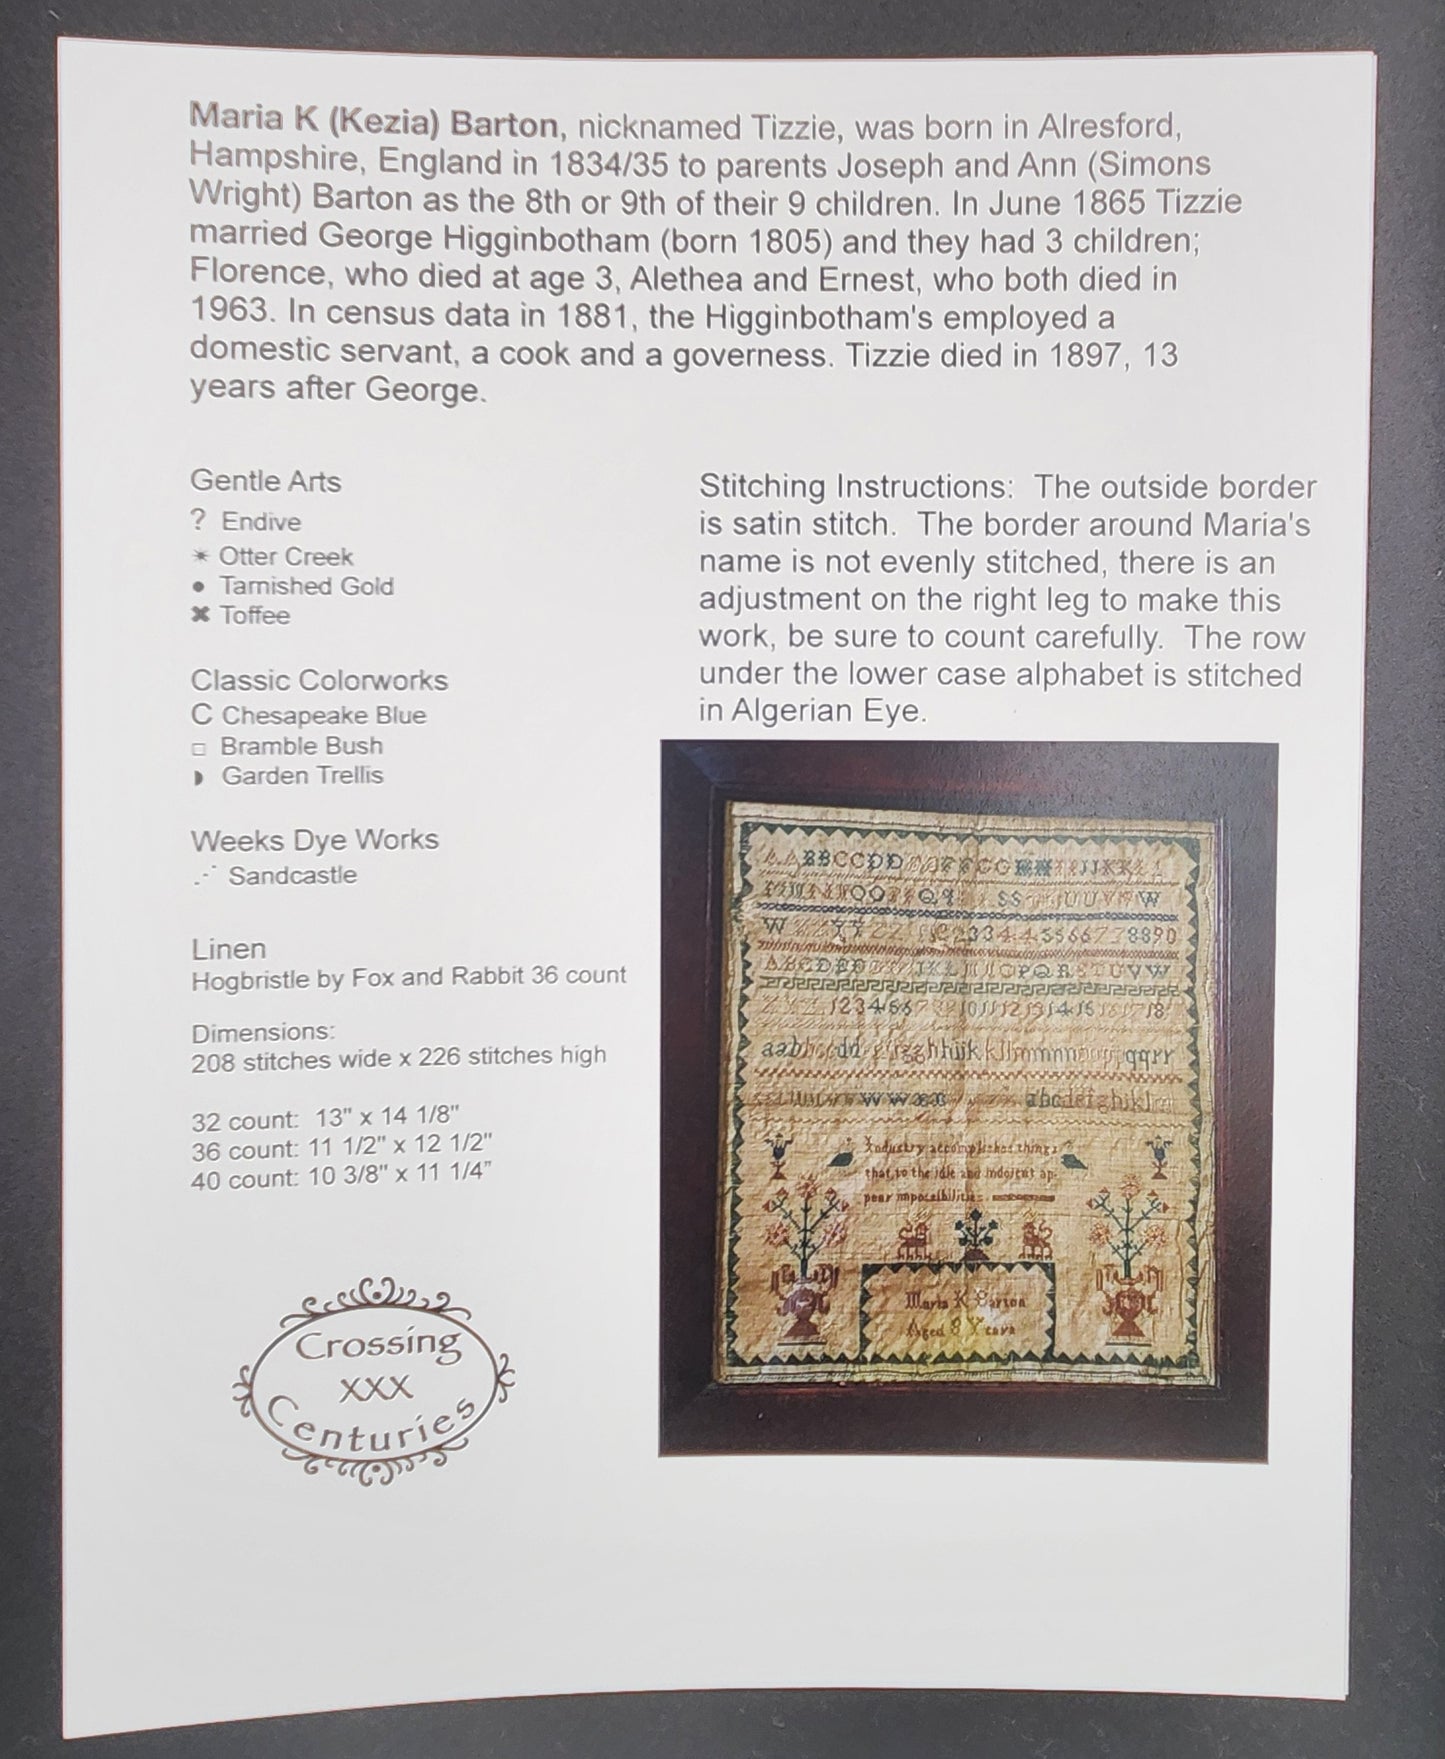 Maria K (Kezia) Barton, nicknamed Tizzie, was born in Alresford,
Hampshire, England in 1834/35 to parents Joseph and Ann (Simons
Wright) Barton as the 8th or 9th of their 9 children. In June 1865 Tizzie
married George Higginbotham (born 1805) and they had 3 children;
Florence, who died at age 3, Alethea and Ernest, who both died in
1963. In census data in 1881, the Higginbotham's employed a
domestic servant, a cook and a governess. Tizzie died in 1897, 13
years after George.
Gentle Arts
? Endive
✴ Otter Creek
● Tarnished Gold
✖ Toffee
Classic Colorworks
C Chesapeake Blue
□ Bramble Bush
◗ Garden Trellis
Weeks Dye Works
Sandcastle
Linen
Hogbristle by Fox and Rabbit 36 count
Dimensions:
208 stitches wide x 226 stitches high
32 count: 13" x 14 1/8"
36 count: 11 1/2" x 12 1/2"
40 count: 10 3/8" x 11 1/4"
Crossing
XXX
Centuries
Stitching Instructions: The outside border
is satin stitch. The border around Maria's
name is not evenly stitched, there is an
adjustment on the right leg to make this
work, be sure to count carefully. The row
under the lower case alphabet is stitched
in Algerian Eye.
Industry accomplishes things
that to the idle and indolent ap-
pear impossibilities.
Maria K Barton
Aged 8 Years